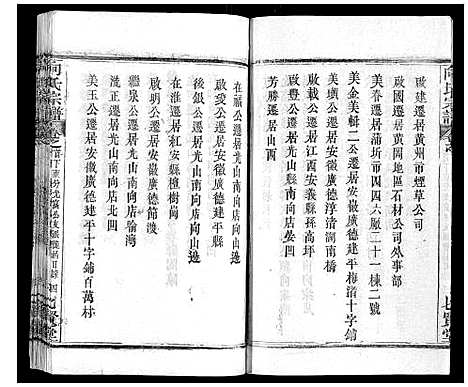 啟建遷居黃州市煙草公司
啟國遷居黃岡地區石材公司外事部
啟發遷居蒲圻市四四六厰二十一棟二號
美金美輯二公遷居安徽廣德建平梅渚十字鋪
美瓊公遷居安徽廣德浮渚清澗
啟載公遷居江西安義縣孫高坪
啟典公遷居光山縣南向店晏凹
芳騰遷居山酉
在福公遷居光山南向店向山邊
啟文公遷居安徽廣德建平縣
後銀公遷居光山南向店向山邊
在淮遷居紅安縣檀樹崗
啟明公遷居安徽廣德節渡
繼泉公遷居光山南向店榆灣
洗正遷居光山南向店北凹
美玉公遷居安徽廣德建平十字鋪百萬村
向氏宗譜
卷之
四